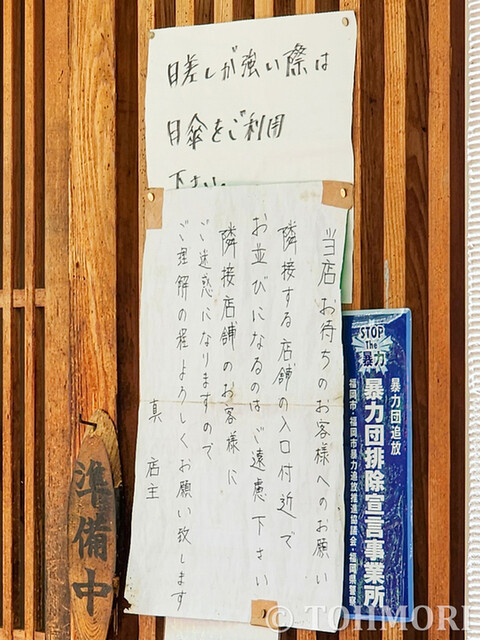 日差しが強い際は
日傘をご利用
下さい。
当店お待ちのお客様へのお願い
隣接する店舗の入口付近で
お並びになるのはご遠慮下さい
隣接店舗のお客様に
ご迷惑になりますので
ご理解の程よろしくお願い致します
真 店主
STOP
The
暴力
暴力団追放
暴力団排除宣言事業所
福岡市・福岡市暴力追放推進協議会・福岡県警察
準備中
© TOHMORI